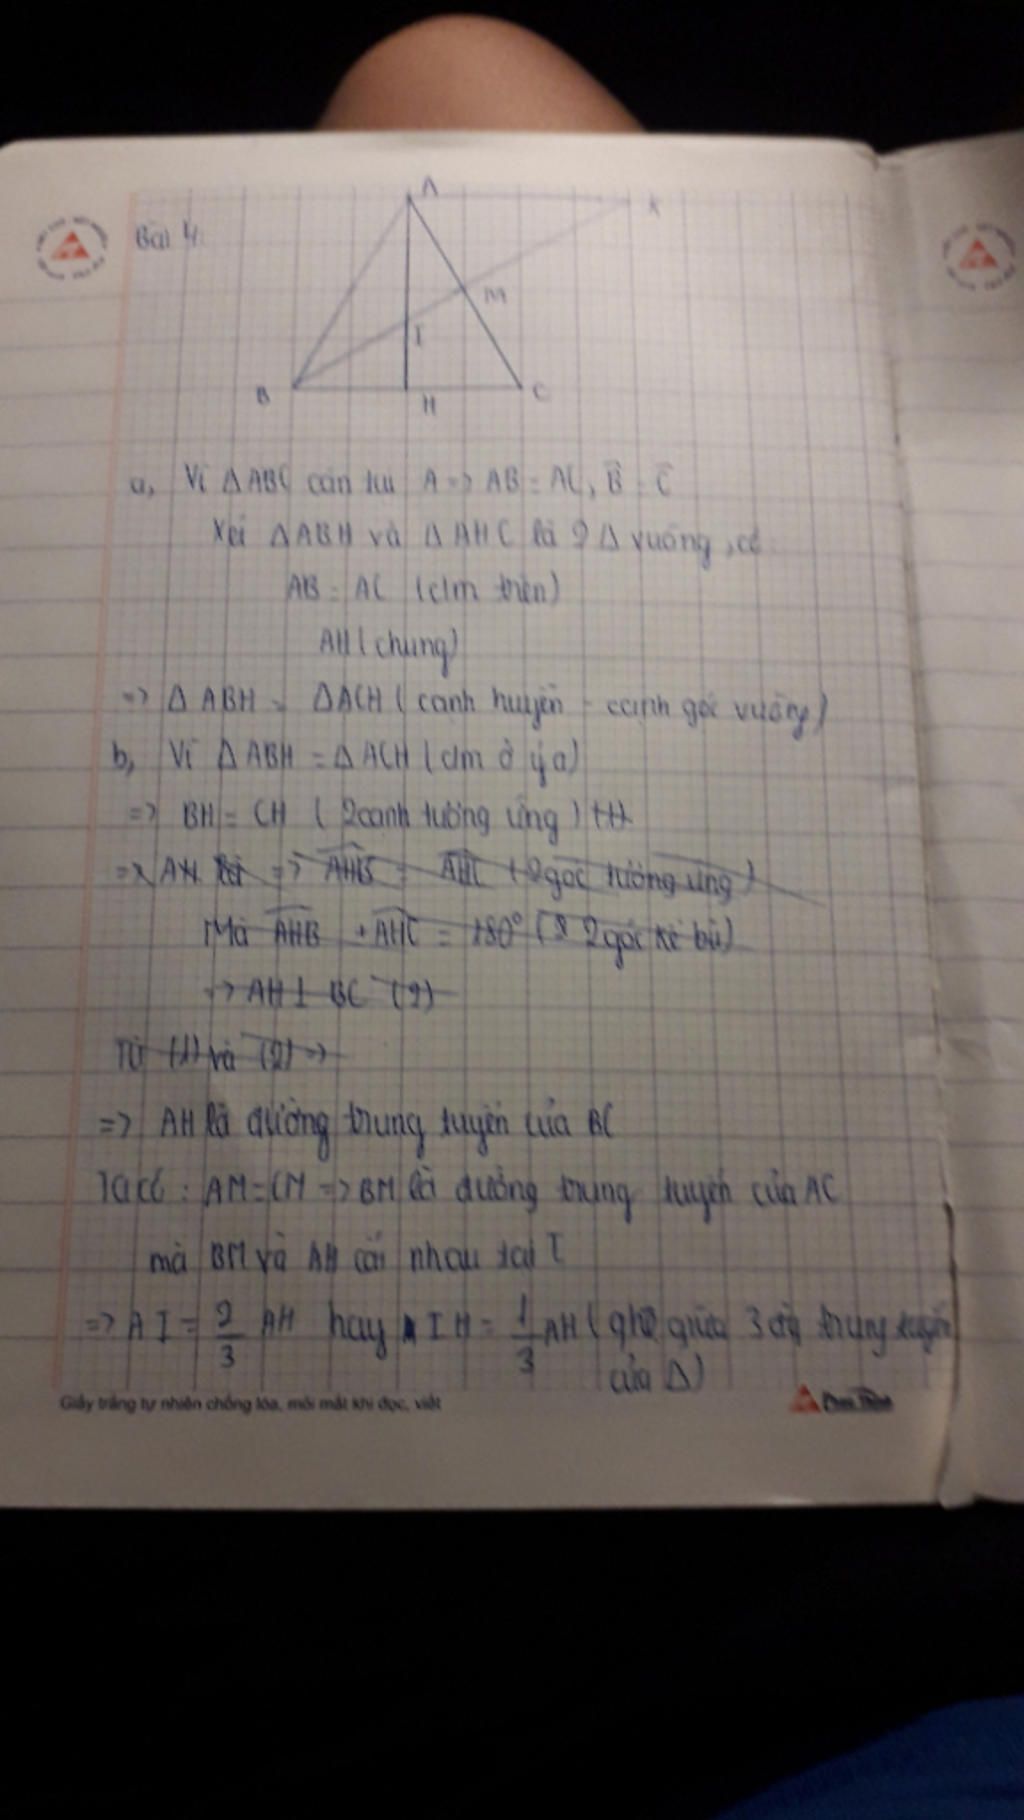 Bài 4:
A
K
M
I
B
H
C
a, Vì ΔABC cân tại A => AB = AC, B̂ = Ĉ
Xét ΔABH và ΔAHC là 2 Δ vuông, có:
AB = AC (cm trên)
AH (chung)
=> Δ ABH = ΔACH (cạnh huyền - cạnh góc vuông)
b, Vì ΔABH = ΔACH (cm ở ý a)
=> BH = CH (2 cạnh tương ứng) (1)
=> AH là => AHB = AHC (2 góc tương ứng)
Mà AHB + AHC = 180° (2 góc kề bù)
=> AH ⊥ BC (2)
Từ (1) và (2) =>
=> AH là đường trung tuyến của BC
Ta có: AM = CM => BM là đường trung tuyến của AC
mà BM và AH cắt nhau tại I
=> AI = 2/3 AH hay IH = 1/3 AH ( giữa 3 trung tuyến
của Δ)
Giấy trắng tự nhiên chống lóa, mỏi mắt khi đọc, viết